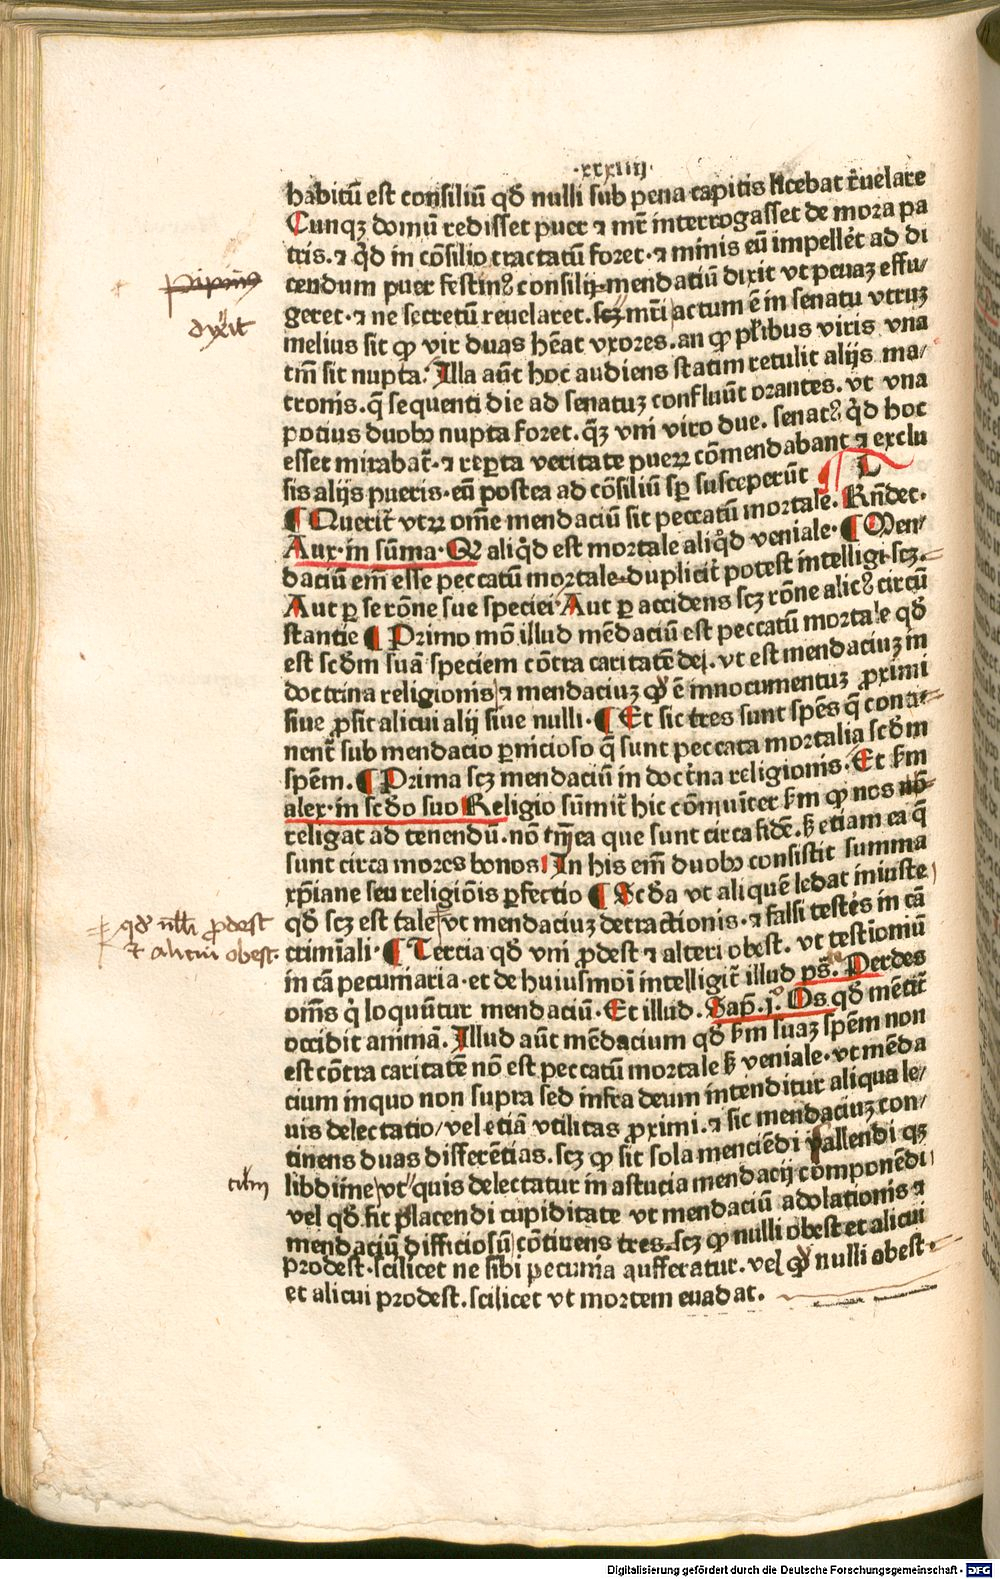 .xxxiiij.
habitū est consiliū qd̄ nulli sub pena capitis licebat r̄uelare
Cunqꝫ domū redisset puer ⁊ mr̄ interrogasset de mora pa
tris. ⁊ q̇d in cōsilio tractatū foret. ⁊ minis eū impelleret ad di
cendum puer festinꝰ consilij mendaciū dixit vt penaꝫ effu/
geret. ⁊ ne secretū reuelaret. scꝫ mr̄i actum ē in senatu vtruꝫ
melius sit ꝙ vir duas hēat vxores. an ꝙ pl̄ibus viris vna
tm̄ sit nupta. Illa aūt hoc audiens statim retulit alijs ma/
tronis. q̄ sequenti die ad senatuꝫ confluūt orantes. vt vna
potius duobꝰ nupta foret. q̄ꝫ vni viro due. senatꝰ q̇d hoc
esset mirabat̄. ⁊ reꝑta veritate pueꝝ cōmendabant ⁊ exclu
sis alijs pueris. eū postea ad cōsiliū sꝑ susceperūt
L
¶ Querit̄ vtꝝ om̄e mendaciū sit peccatū mortale. Rn̄det.
Aux. in sūma. Q aliq̇d est mortale aliq̇d veniale. ¶ Men/
daciū em̄ esse peccatū mortale duplicit̄ potest intelligi. scꝫ.
Aut ꝑ se rōne sue speciei. Aut ꝑ accidens scꝫ rōne alicꝰ circū
stantie ¶ Primo mō illud mēdaciū est peccatū mortale qd̄
est scd̄m suā speciem cōtra caritatē dei. vt est mendaciuꝫ in
doctrina religionis ⁊ mendaciuꝫ ꝙ ē in nocumentuꝫ ꝓximi
siue ꝓsit alicui alij siue nulli. ¶ Et sic tres sunt spēs q̄ conti=
nent̄ sub mendacio ꝑnicioso q̄ sunt peccata mortalia scd̄m
spēm. ¶ Prima scꝫ mendaciū in doctrīna religionis. Et ẜm
alex. in scd̄o suo Religio sūmit̄ hic cōmuīter ẜm ꝙ nos nō
religat ad tenendū. nō tm̄ ea que sunt circa fidē. ẜ etiam ea q̄
sunt circa mores bonos In his em̄ duobꝰ consistit summa
xp̄iane seu religiōis ꝑfectio ¶ Scd̄a vt aliquē ledat iniuste
qd̄ scꝫ est tale vt mendaciuꝫ detractionis. ⁊ falsi testis in cā
criminali. ¶ Tercia qd̄ vni ꝓdest ⁊ alteri obest. vt testioniū
in cā pecuniaria. et de huiusmōi intelligit̄ illud ps̄. Perdes
om̄s q̇ loquūtur mendaciū. Et illud. Sap̄. j. Os qd̄ mētit̄
occidit animā. Illud aūt mēdacium qd̄ ẜm suaꝫ spēm non
est cōtra caritatē nō est peccatū mortale ẜ veniale. vt mēda
cium in quo non supra sed infra deum intenditur aliqua le/
uis delectatio/ vel etiā vtilitas ꝓximi. ⁊ sic mendaciuꝫ con/
tinens duas differētias. scꝫ ꝙ sit sola menciēdi fallendi qꝫ
libdiine vt quis delectatur in astucia mendacij cōponēdi
vel qd̄ fit placendi cupiditate vt mendaciū adolationis ⁊
mendaciū difficiosū cōtinens tres. scꝫ ꝙ nulli obest et alicui
prodest. scilicet ne sibi pecunia aufferatur. vel ꝙ nulli obest.
et alicui prodest. scilicet vt mortem euadat.
dixit
qd̄ nulli prodest
et alicui obest.